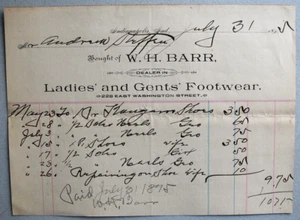 July 31
Mr Andrew Steffen
Bought of W. H. BARR,
DEALER IN
Ladies' and Gents' Footwear.
222 EAST WASHINGTON STREET.
May 23 To 1 Pr Kangaroo Shoes 3 50
28 " 1/2 Soles Heels Geo
July 3 " " Heels Geo 75
15 " 1 P. Shoes wife 3 50
17 " 1/2 Soles
23 " 1/2 " Heels Geo 75
26 " Repairing on Shoe wife 10
9.75
Paid July 31 1895
W.H. Barr